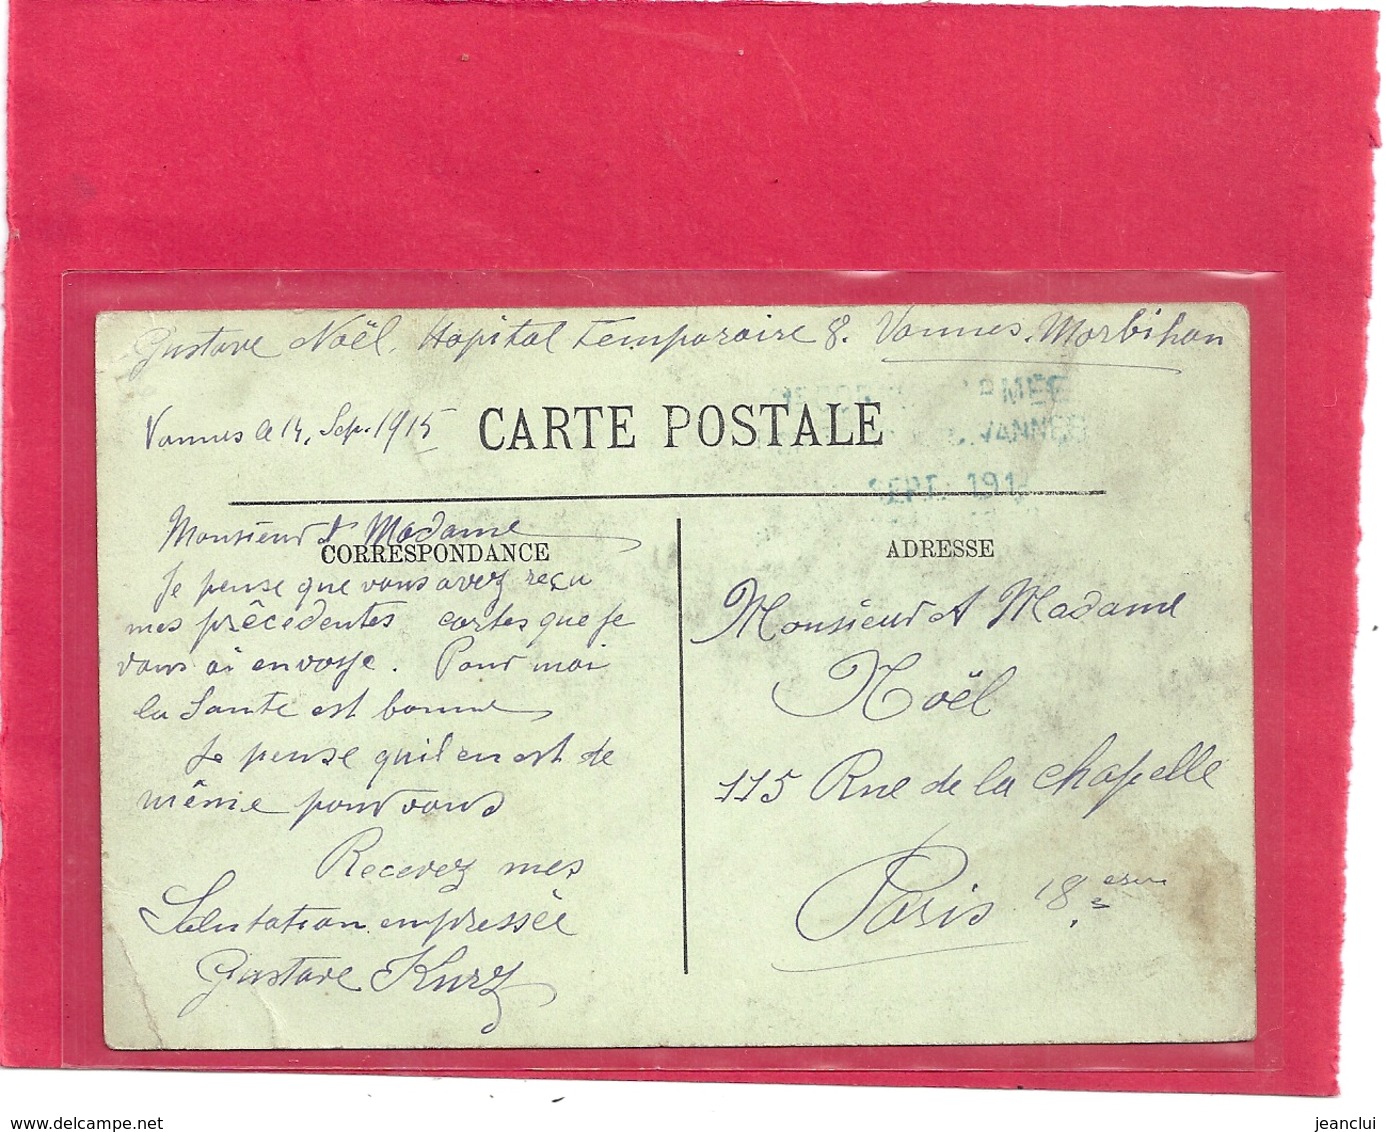 Gustave Noël, Hopital temporaire 8. Vannes. Morbihan
Vannes le 14, Sep. 1915
CARTE POSTALE
VANNES
SEPT. 191
Monsieur & Madame
CORRESPONDANCE
Je pense que vous avez reçu
mes précédentes cartes que je
vous ai envoyé. Pour moi
la Sante est bonne
Je pense qu'il en est de
même pour vous
Recevez mes
Salutation empressée
Gustave Kurz
ADRESSE
Monsieur et Madame
Noël
115 Rue de la Chapelle
Paris 18 eme
delcampe.net
jeanclui